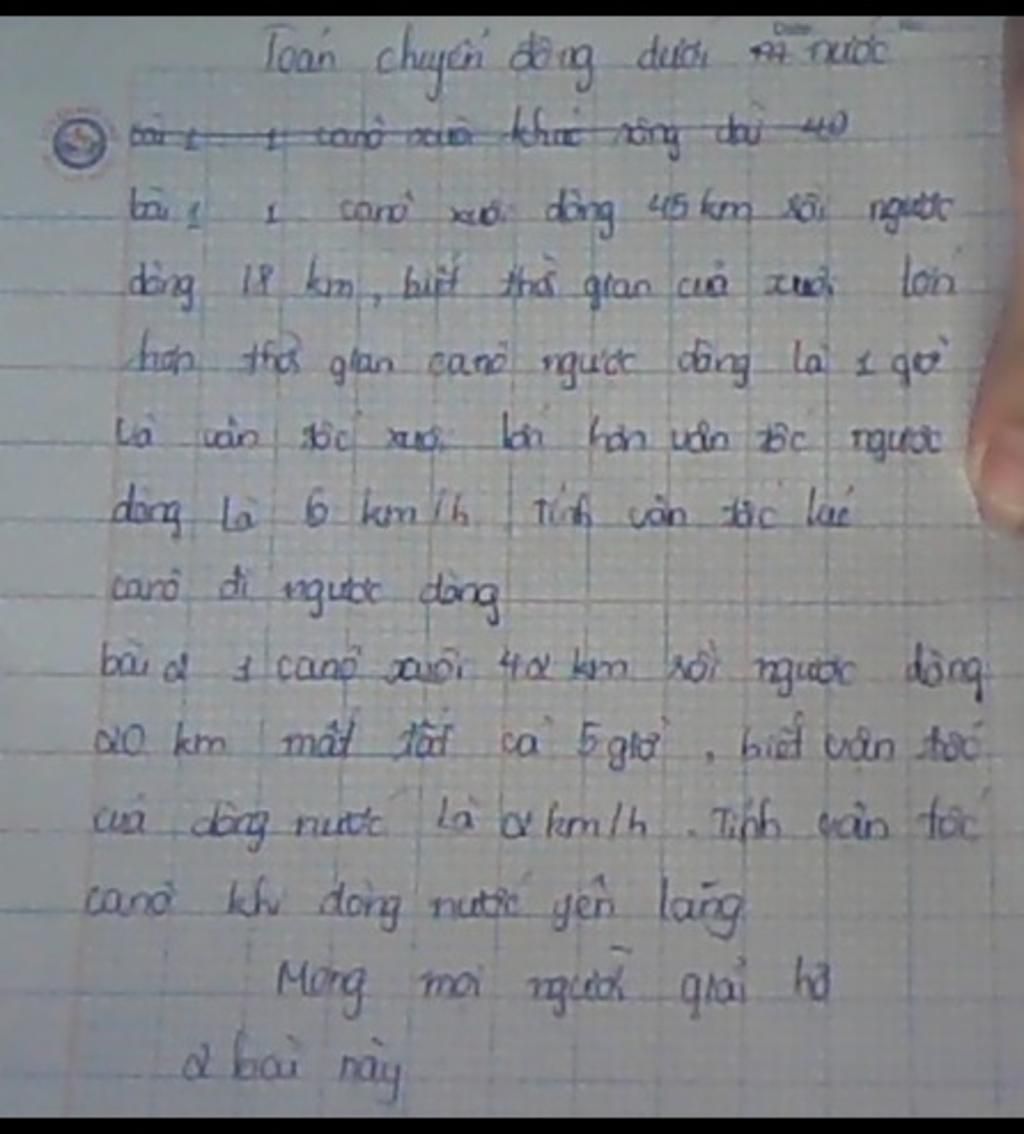 Toán chuyển động dưới nước
bài 1 1 canô xuôi khúc sông dài 40
bài 1 1 canô xuôi dòng 45 km rồi ngược
dòng 18 km, biết thời gian của xuôi lớn
hơn thời gian canô ngược dòng là 1 giờ
và vận tốc xuôi lớn hơn vận tốc ngược
dòng là 6 km/h Tính vận tốc lúc
canô đi ngược dòng
bài 2 1 canô xuôi 42 km rồi ngược dòng
20 km mất tất cả 5 giờ, biết vận tốc
của dòng nước là 2 km/h. Tính vận tốc
canô khi dòng nước yên lặng
Mong mọi người giải hộ
2 bài này